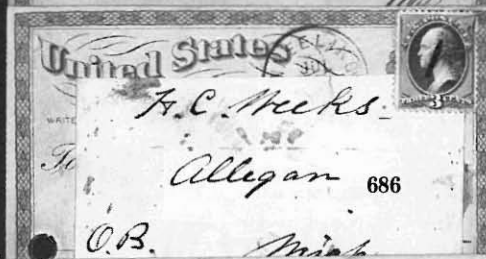 United States
WRITE
H. C. Weeks
Allegan
686
O.B. Mich